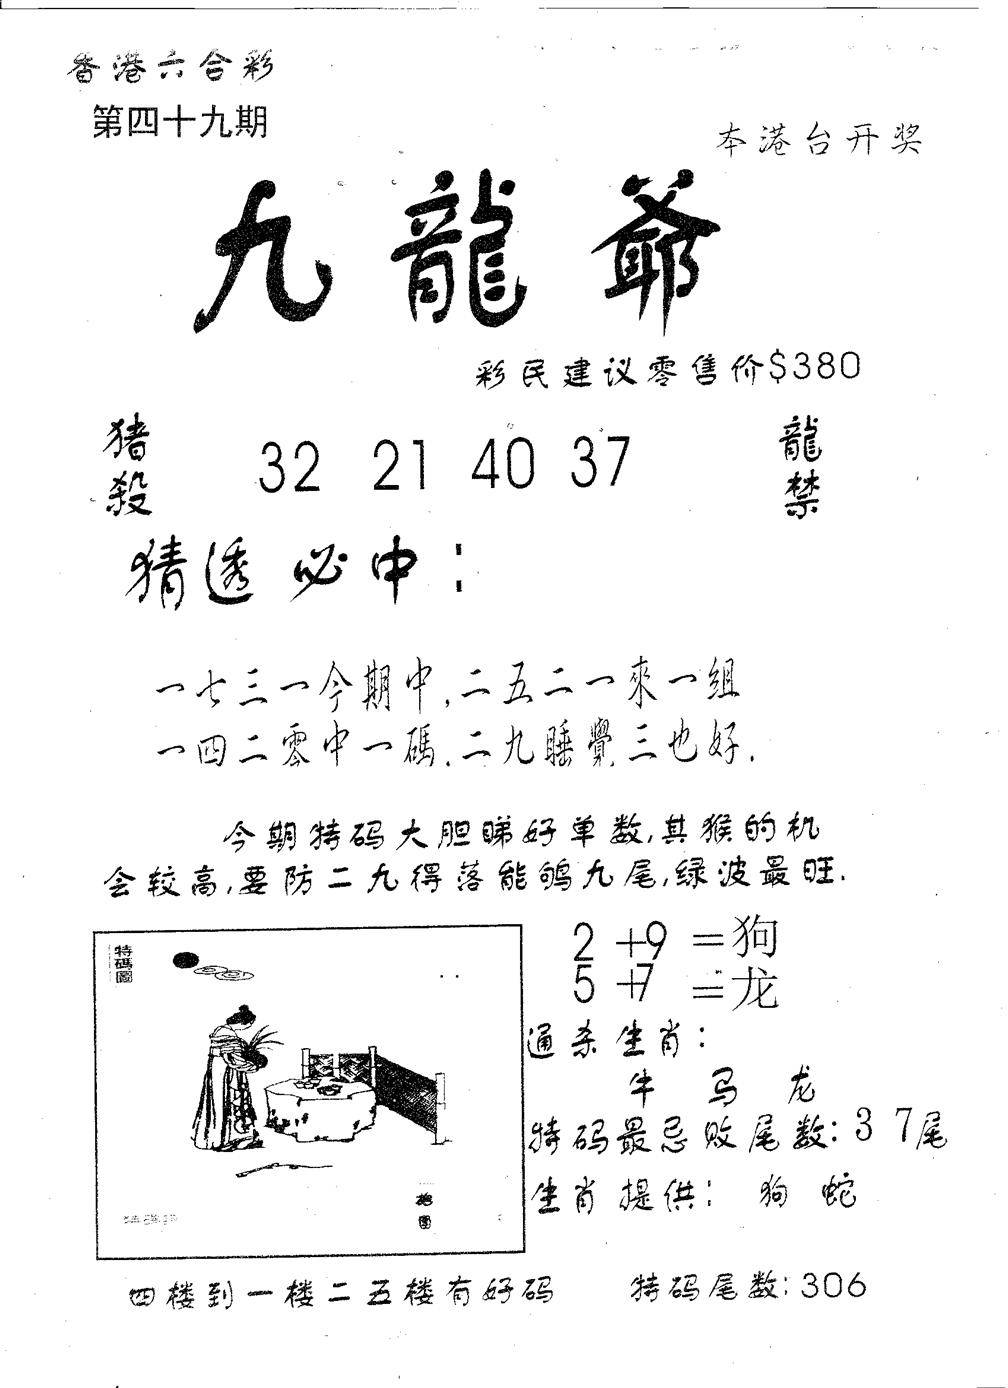 香港六合彩
第四十九期
本港台开奖
九龍爺
彩民建议零售价$380
猪殺 32 21 40 37 龍禁
猜透必中:
一七三一今期中,二五二一來一組
一四二零中一碼,二九睡覺三也好.
今期特码大胆睇好单数,其猴的机
会较高,要防二九得落能鸲九尾,绿波最旺.
特碼圖
2+9=狗
5+7=龙
通杀生肖:
牛 马 龙
特码最忌败尾数:3 7尾
生肖提供: 狗 蛇
四楼到一楼二五楼有好码 特码尾数:306